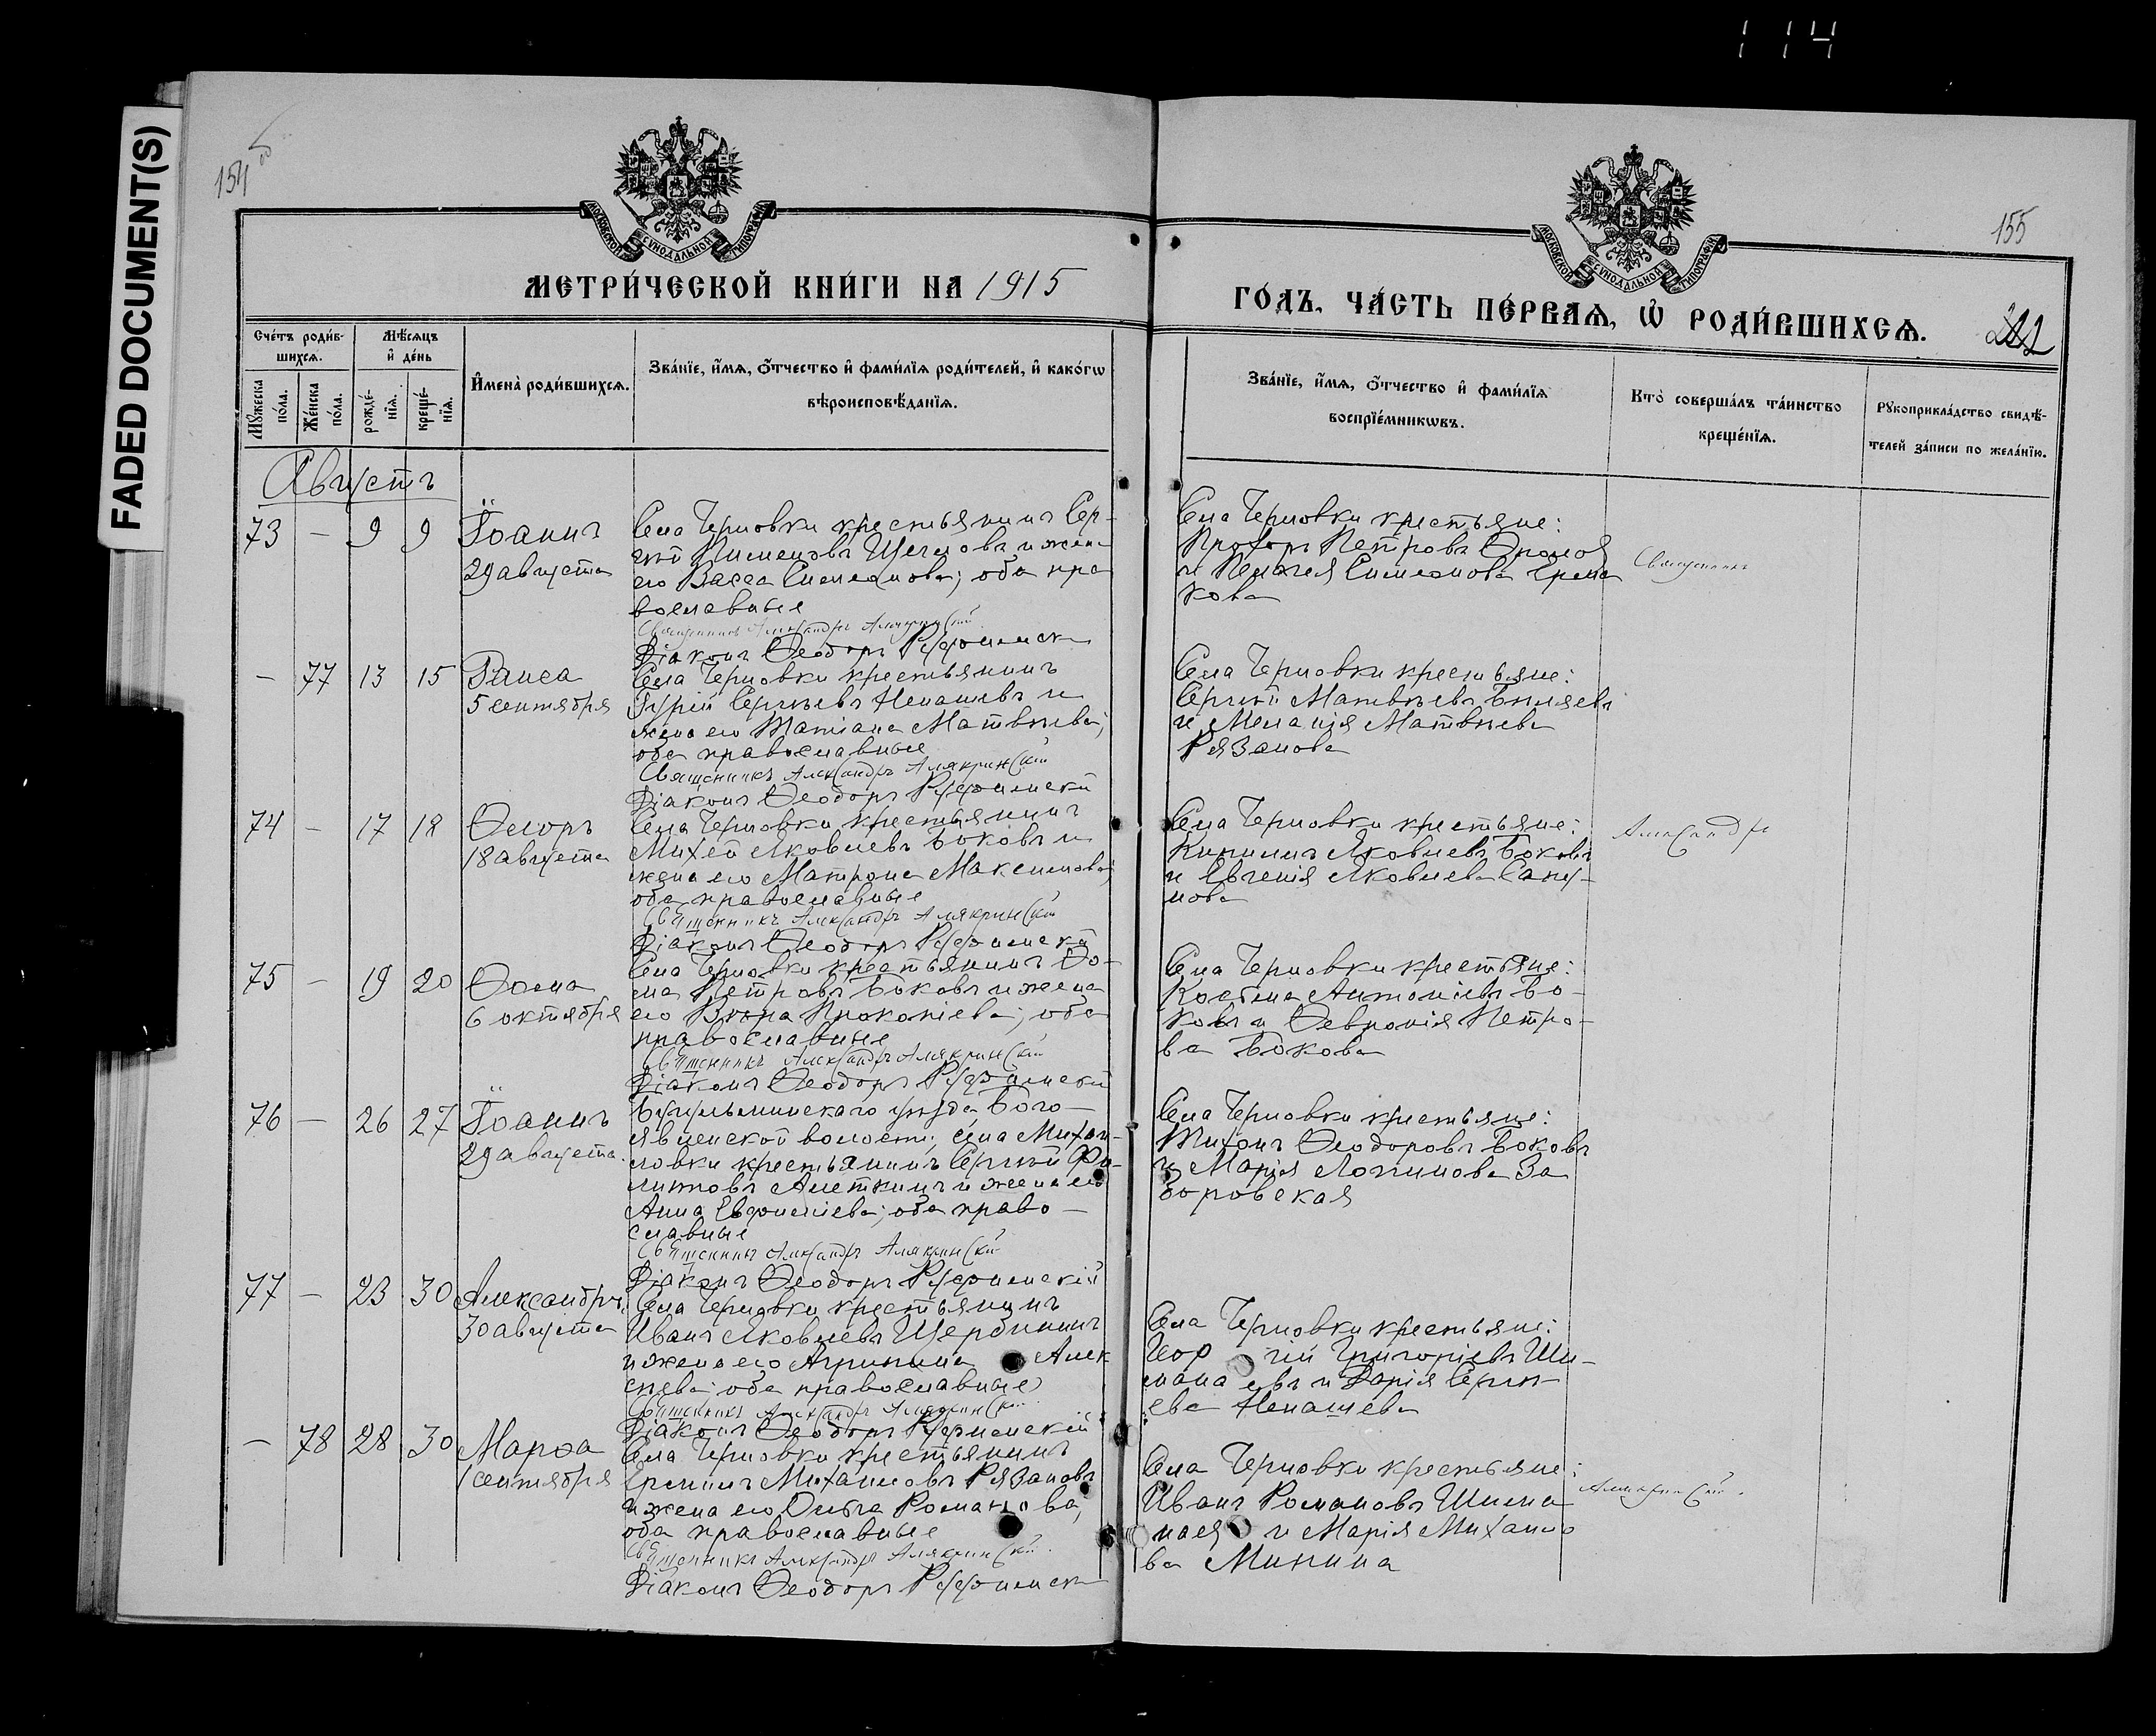 114
FADED DOCUMENT(S)
154 об
155
МОСКОВСКОЙ СѴНОДАЛЬНОЙ ТИПОГРАФІИ
МОСКОВСКОЙ СѴНОДАЛЬНОЙ ТИПОГРАФІИ
МЕТРИ́ЧЕСКОЙ КНИ́ГИ НА 1915
ГО́ДЪ, ЧА́СТЬ ПЕ́РВАѦ, Ѡ҆ РОДИ́ВШИХСѦ.
Сче́тъ роди́в-
шихсѧ.
Мѣ́сѧцъ
и҆ де́нь
Мꙋ́жеска
по́ла.
Же́нска
по́ла.
рожде́-
нїѧ.
креще́-
нїѧ.
И҆мена̀ роди́вшихсѧ.
Зва́нїе, и҆́мѧ, ѻ҆́тчество и҆ фами́лїѧ роди́телей, и҆ како́гѡ
вѣроисповѣ́данїѧ.
Зва́нїе, и҆́мѧ, ѻ҆́тчество и҆ фами́лїѧ
воспрїе́мникѡвъ.
Кто̀ соверша́лъ та́инство
креще́нїѧ.
Рꙋкоприкла́дство свидѣ́-
телей за́писи по жела́нїю.
Августъ
73 — 9 9 Іоаннъ
29 августа
Села Черновки крестьянинъ Сер-
гій Пименовъ и жена
его Васса Симеонова; оба пра
вославные
Священникъ Александръ Алякринскій
Діаконъ Ѳеодоръ Руфимск
Села Черновки крестьяне:
Прохоръ Петровъ
и Пелагея Симеонова Ерма
кова
Священникъ
— 77 13 15 Раиса
5 сентября
Села Черновки крестьянинъ
Гурій Сергѣевъ Ненашевъ и
жена его Татіана Матвѣева;
оба православные
Священникъ Александръ Алякринскій
Діаконъ Ѳеодоръ Руфимскій
Села Черновки крестьяне:
Сергій Матвѣевъ Бѣляевъ
и Меланія Матвѣева
Рязанова
74 — 17 18 Флоръ
18 августа
Села Черновки крестьянинъ
Михей Яковлевъ Боковъ и
жена его Матрона Максимова;
оба православные
Священникъ Александръ Алякринскій
Діаконъ Ѳеодоръ Руфимскій
Села Черновки крестьяне:
Кириллъ Яковлевъ Боковъ
и Евгенія Яковлева Сапу-
нова
Александръ
75 — 19 20 Ѳома
6 октября
Села Черновки крестьянинъ Ѳо-
ма Петровъ Боковъ и жена
его Вѣра Прокопіева; оба
православные
Священникъ Александръ Алякринскій
Діаконъ Ѳеодоръ Руфимскій
Села Черновки крестьяне:
Косьма Антоніевъ Бо-
ковъ и Ѳевронія Петро-
ва Бокова
76 — 26 27 Іоаннъ
29 августа.
Бугульминскаго уѣзда Бого-
явленской волости, села Михаи-
ловки крестьянинъ Сергій Фи-
липповъ Алеткинъ и жена его
Анна Евфиміева; оба право-
славные
Священникъ Александръ Алякринскій
Діаконъ Ѳеодоръ Руфимскій
Села Черновки крестьяне:
Тихонъ Ѳеодоровъ Боковъ
и Марія Логинова За
боровская
77 — 23 30 Александръ
30 августа
Села Черновки крестьянинъ
Иванъ Яковлевъ Щербининъ
и жена его Агрипина Алек
сѣева; оба православные
Священникъ Александръ Алякринскій
Діаконъ Ѳеодоръ Руфимскій
Села Черновки крестьяне:
Георгій Григоріевъ Ши-
манаевъ и Дарія Сергѣ-
ева Ненашева
— 78 28 30 Марѳа
1 сентября
Села Черновки крестьянинъ
Ермилъ Михаиловъ Рязановъ
и жена его Ольга Романова,
оба православные
Священникъ Александръ Алякринскій.
Діаконъ Ѳеодоръ Руфимск
Села Черновки крестьяне:
Иванъ Романовъ Шима
наевъ и Марія Михаило
ва Минина
Алякринскій.